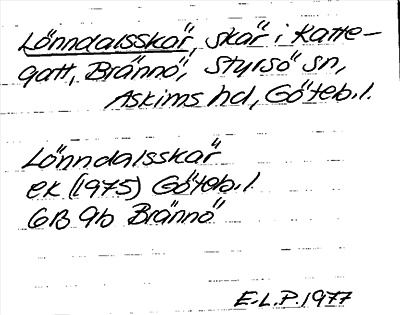 Lönndalsskär, skär i Katte-
gatt, Brännö, Styrsö sn,
Askims hd, Göteb. l.
Lönndalsskär
ek (1975) Göteb. l.
6B 9b Brännö
E.L.P. 1977